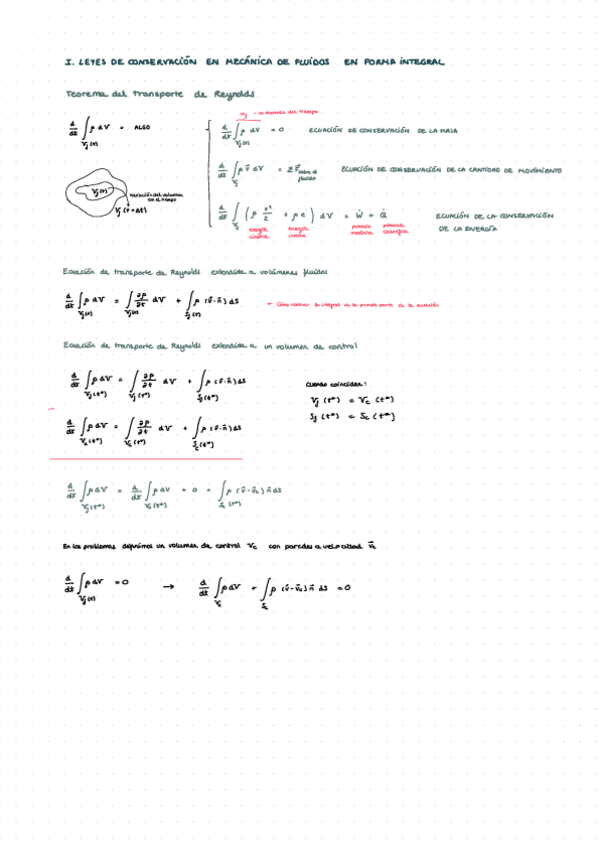 I. LEYES DE CONSERVACIÓN EN MECÁNICA DE FLUIDOS EN FORMA INTEGRAL
Teorema del transporte de Reynolds
d/dt ∫_{Vf(t)} ρ dV = ALGO
→ no depende del tiempo
d/dt ∫_{Vf(t)} ρ dV = 0 ECUACIÓN DE CONSERVACIÓN DE LA MASA
d/dt ∫_{Vf} ρ v⃗ dV = Σ F⃗ sobre el fluido ECUACIÓN DE CONSERVACIÓN DE LA CANTIDAD DE MOVIMIENTO
d/dt ∫_{Vf} (ρ v²/2 + ρe) dV = Ẇ + Q̇ ECUACIÓN DE LA CONSERVACIÓN DE LA ENERGÍA
energía cinética energía interna potencia mecánica potencia calorífica
Vf(t)
Variación del volumen en el tiempo
Vf(t+Δt)
Ecuación de transporte de Reynolds extendida a volúmenes fluidos
d/dt ∫_{Vf(t)} ρ dV = ∫_{Vf(t)} ∂ρ/∂t dV + ∫_{Sf(t)} ρ (v⃗·n⃗) dS
← Cómo resolver la integral de la primera parte de la ecuación
Ecuación de transporte de Reynolds extendida a un volumen de control
d/dt ∫_{Vf(t*)} ρ dV = ∫_{Vf(t*)} ∂ρ/∂t dV + ∫_{Sf(t*)} ρ (v⃗·n⃗) dS
Cuando coincidan:
Vf(t*) = Vc(t*)
Sf(t*) = Sc(t*)
− d/dt ∫_{Vc(t*)} ρ dV = ∫_{Vc(t*)} ∂ρ/∂t dV + ∫_{Sc(t*)} ρ (v⃗·n⃗) dS
d/dt ∫_{Vf(t*)} ρ dV = d/dt ∫_{Vc(t*)} ρ dV + 0 + ∫_{Sc(t*)} ρ (v⃗-v⃗c) n⃗ dS
En los problemas definimos un volumen de control Vc con paredes a velocidad v⃗c
d/dt ∫_{Vf(t)} ρ dV = 0 → d/dt ∫_{Vc} ρ dV + ∫_{Sc} ρ (v⃗-v⃗c) n⃗ dS = 0